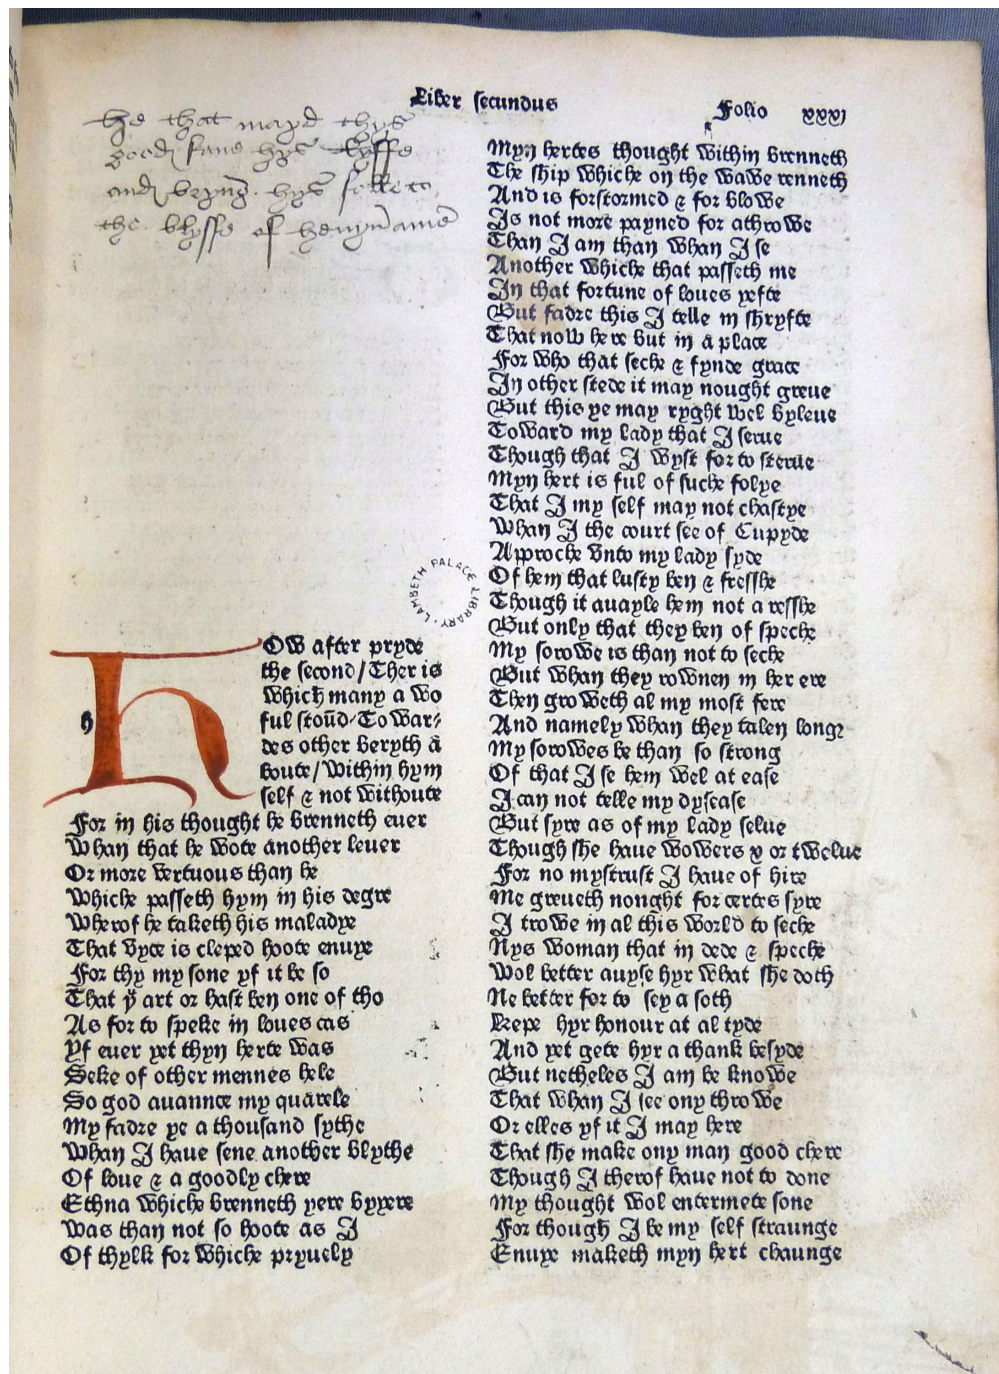 Liber secundus
Folio xxxj
he that mayd thys
good saue hys lyffe
and bryng hys solle to
the blysse of heuyn amē
h
HOw after pryde
the second/Ther is
Which many a wo
ful stoūd/Towar⸗
des other beryth a
boute/within hym
self & not withoute
For in his thought he brenneth euer
Whan that he wote another leuer
Or more vertuous than he
Whiche passeth hym in his degre
Wherof he taketh his maladye
That vyce is cleped hoote enuye
For thy my sone yf it be so
That yͧ art or hast ben one of tho
As for to speke in loues cas
Yf euer yet thyn herte was
Seke of other mennes hele
So god auannce my quarele
My fadre ye a thousand sythe
Whan I haue sene another blythe
Of loue & a goodly chere
Ethna whiche brenneth yere byyere
Was than not so hoote as I
Of thylk for whiche pryuely
Myn hertes thought within brenneth
The ship whiche on the wawe renneth
And is forstormed & for blowe
Is not more payned for athrowe
Than I am than whan I se
Another whiche that passeth me
In that fortune of loues yefte
But fadre this I telle in shryfte
That nowhere but in a place
For who that seche & fynde grace
In other stede it may nought greue
But this ye may ryght wel byleue
Toward my lady that I serue
Though that I wyst for to sterue
Myn hert is ful of suche folye
That I my self may not chastye
Whan I the court see of Cupyde
Approche vnto my lady syde
Of hem that lusty ben & fresshe
Though it auayle hem not a resshe
But only that they ben of speche
My sorowe is than not to seche
But whan they rownen in her ere
Then groweth al my most fere
And namely whan they talen longe
My sorowes be than so strong
Of that I se hem wel at ease
I can not telle my dysease
But syre as of my lady selue
Though she haue wowers x or twelue
For no mystrust I haue of hire
Me greueth nought for certes syre
I trowe in al this world to seche
Nys woman that in dede & speche
Wol better auyse hyr what she doth
Ne better for to sey a soth
Kepe hyr honour at al tyde
And yet gete hyr a thank besyde
But netheles I am be knowe
That whan I see ony throwe
Or elles yf it I may here
That she make ony man good chere
Though I therof haue not to done
My thought wol entermete sone
For though I be my self straunge
Enuye maketh myn hert chaunge
LAMBETH PALACE LIBRARY